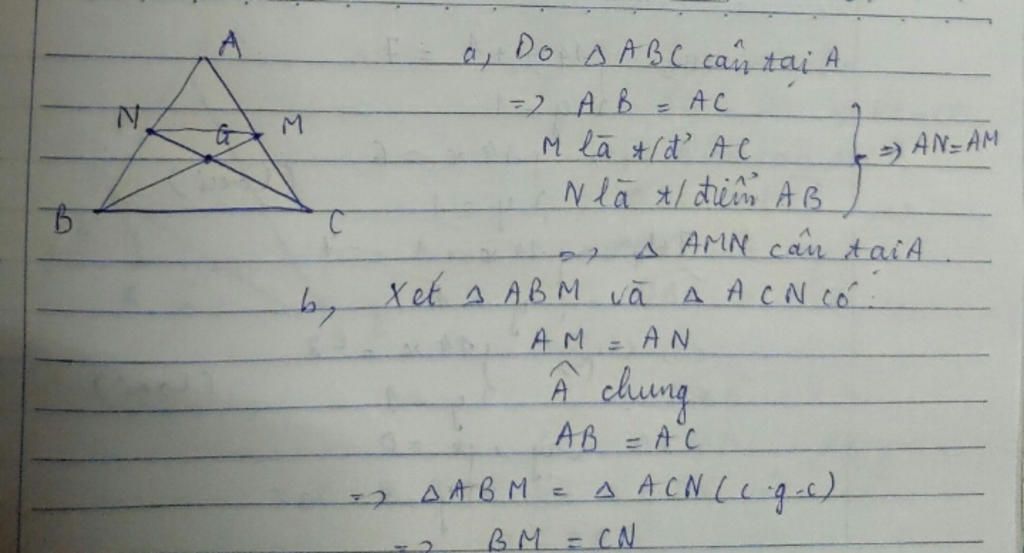 A
N
G
M
B
C
a, Do Δ ABC cân tại A
=> AB = AC
M là t/đ' AC
N là t/điểm AB
=> AN=AM
=> Δ AMN cân tại A.
b, Xét Δ ABM và Δ ACN có:
AM = AN
Â chung
AB = AC
=> ΔABM = Δ ACN (c.g-c)
=> BM = CN